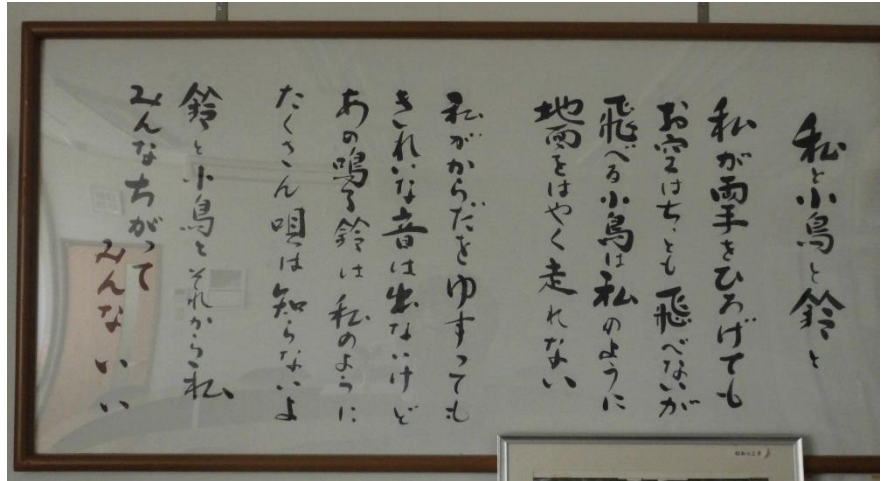 私と小鳥と鈴と
私が両手をひろげても
お空はちっとも飛べないが
飛べる小鳥は私のように
地面をはやく走れない
私がからだをゆすっても
きれいな音は出ないけど
あの鳴る鈴は私のように
たくさん唄は知らないよ
鈴と小鳥とそれから私
みんなちがって
みんないい